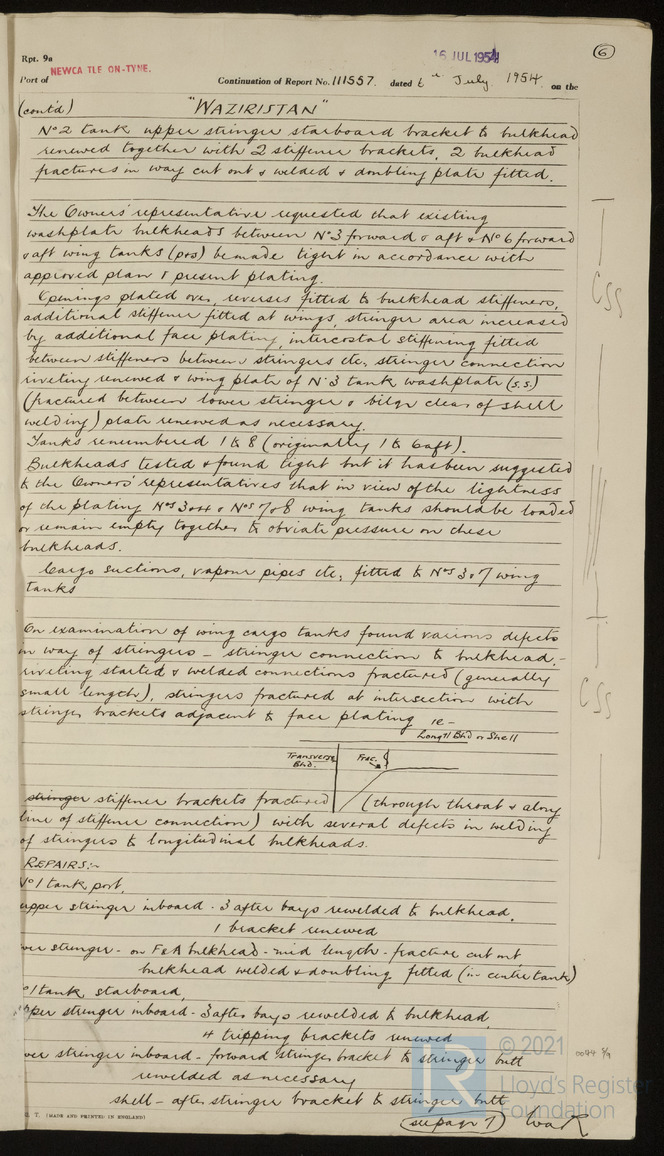 Rpt. 9a
16 JUL 1954
6
Port of NEWCASTLE ON-TYNE.
Continuation of Report No. 111557. dated 6th July 1954 on the
(contd) "WAZIRISTAN"
No 2 tank upper stringer starboard bracket to bulkhead
renewed together with 2 stiffener brackets, 2 bulkhead
fractures in way cut out & welded & doubling plate fitted.
The Owners' representative requested that existing
washplate bulkheads between No 3 forward & aft & No 6 forward
& aft wing tanks (p&s) be made tight in accordance with
approved plan & present plating.
Openings plated over, reverses fitted to bulkhead stiffeners,
additional stiffener fitted at wings, stringer area increased
by additional face plating, intercostal stiffening fitted
between stiffeners between stringers etc, stringer connection
riveting renewed & wing plate of No 3 tank washplate (s.s)
(fractured between lower stringer & bilge clear of shell
welding) plate renewed as necessary.
Tanks renumbered 1 to 8 (originally 1 to 6 aft).
Bulkheads tested & found tight but it has been suggested
to the Owners' representatives that in view of the lightness
of the plating Nos 3 or 4 & Nos 7 or 8 wing tanks should be loaded
or remain empty together to obviate pressure on these
bulkheads.
Cargo suctions, vapour pipes etc, fitted to Nos 3 & 7 wing
tanks
CSS
On examination of wing cargo tanks found various defects
in way of stringers - stringer connection to bulkhead,-
riveting started & welded connections fractured (generally
small length), stringers fractured at intersection with
stringer brackets adjacent to face plating ie-
CSS
Longtl Bhd or Shell
Transverse Bhd.
Frac.
stringer stiffener brackets fractured (through throat & along
line of stiffener connection) with several defects in welding
of stringers to longitudinal bulkheads.
REPAIRS:-
No 1 tank port,
upper stringer inboard - 3 after bays rewelded to bulkhead,
1 bracket renewed
wer stringer - on F&A bulkhead - mid length - fracture cut out
bulkhead welded & doubling fitted (in centre tank)
o 1 tank starboard,
pper stringer inboard - 3 after bays rewelded to bulkhead,
4 tripping brackets renewed
wer stringer inboard - forward stringer bracket to stringer butt
rewelded as necessary
shell - after stringer bracket to stringer butt
(see page 7)
T. (MADE AND PRINTED IN ENGLAND)
© 2021
Lloyd's Register
Foundation